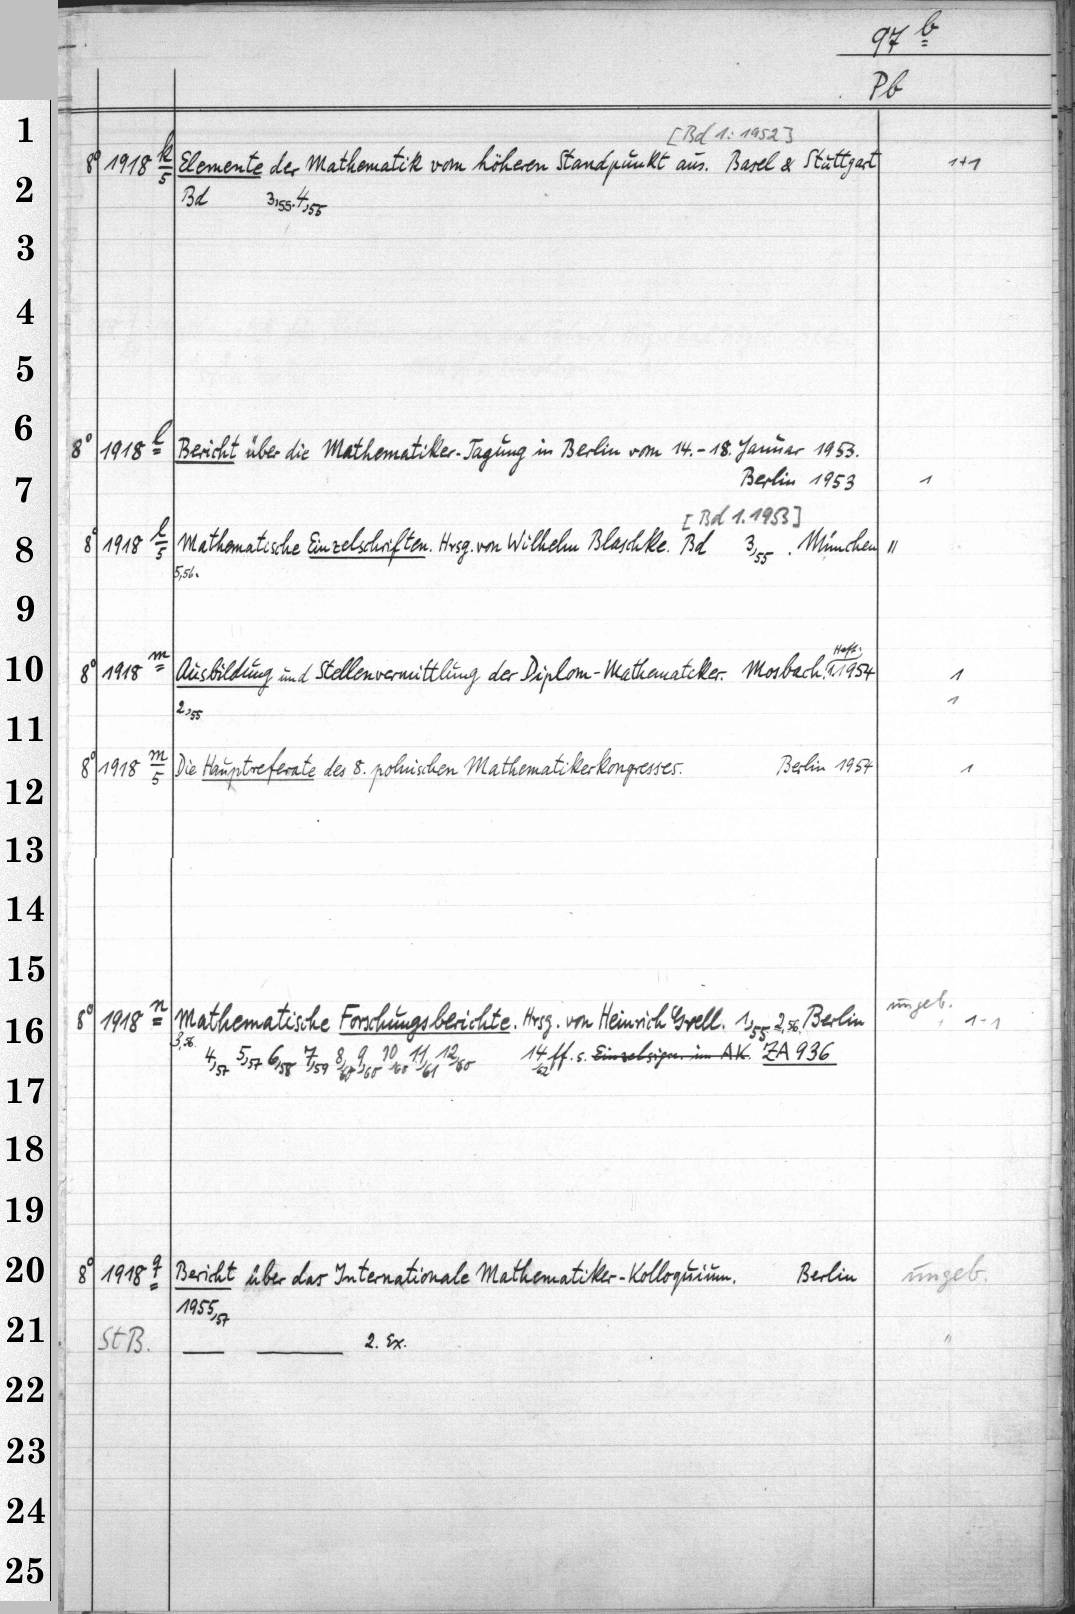 97 b
Pb
1
[Bd 1: 1952]
8° 1918 k/5 Elemente der Mathematik vom höheren Standpunkt aus. Basel & Stuttgart 1+1
2
Bd 3,55. 4,55
3
4
5
6
8° 1918 l Bericht über die Mathematiker-Tagung in Berlin vom 14.-18. Januar 1953.
7
Berlin 1953 1
[Bd 1. 1953]
8
8° 1918 l/5 Mathematische Einzelschriften. Hrsg. von Wilhelm Blaschke. Bd 3,55. München "
5,56.
9
Heft
10
8° 1918 m Ausbildung und Stellenvermittlung der Diplom-Mathematiker. Mosbach. 1,1954 1
2,55 1
11
8° 1918 m/5 Die Hauptreferate des 8. polnischen Mathematikerkongresses. Berlin 1954 1
12
13
14
15
ungeb.
16
8° 1918 n Mathematische Forschungsberichte. Hrsg. von Heinrich Grell. 1,55. 2,56. Berlin 1-1
3,56.
4,57 5,57 6,58 7,59 8,60 9,60 10,60 11,61 12,60 14,62 ff. s. Einzelsign. im AK. ZA 936
17
18
19
20
8° 1918 q Bericht über das Internationale Mathematiker-Kolloquium. Berlin ungeb.
1955,57
21
StB. 2. Ex. "
22
23
24
25